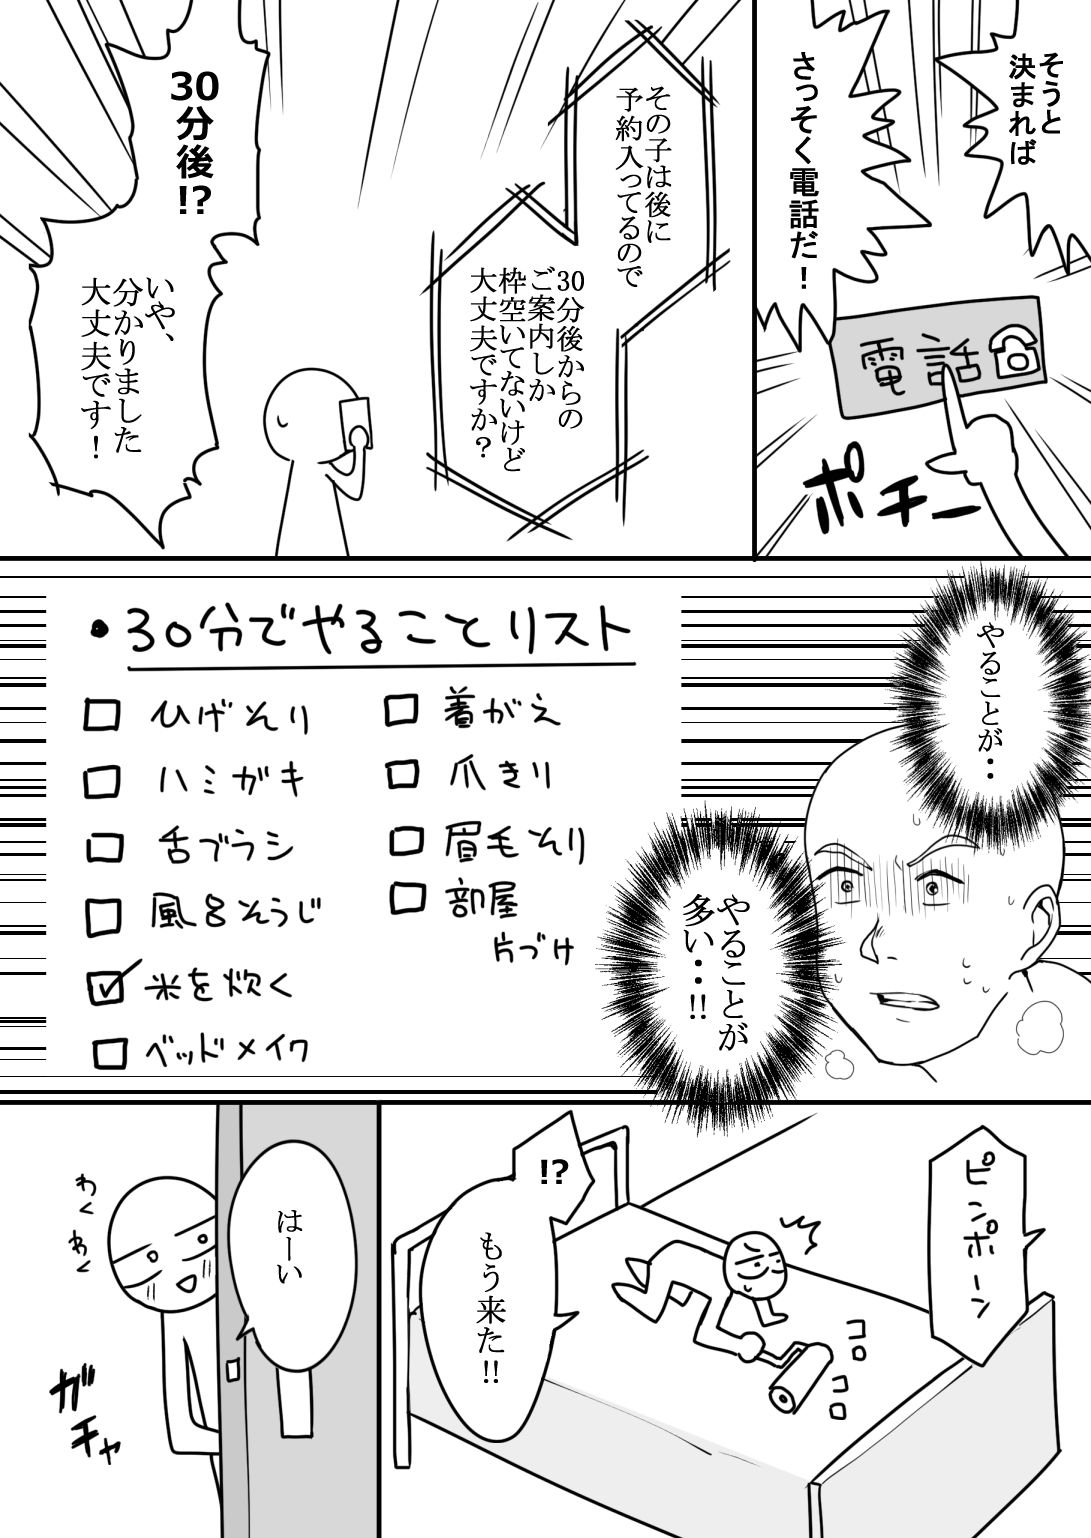 そうと
決まれば
さっそく電話だ！
電話
ポチー
その子は後に
予約入ってるので
30分後からの
ご案内しか
枠空いてないけど
大丈夫ですか？
30分後!?
いや、
分かりました
大丈夫です！
やることが・・
やることが
多い・・!!
・30分でやることリスト
ひげそり
ハミガキ
舌ブラシ
風呂そうじ
米を炊く
ベッドメイク
着がえ
爪きり
眉毛そり
部屋
片づけ
ピンポーン
!?
もう来た!!
コロ
コロ
はーい
わく
わく
ガチャ